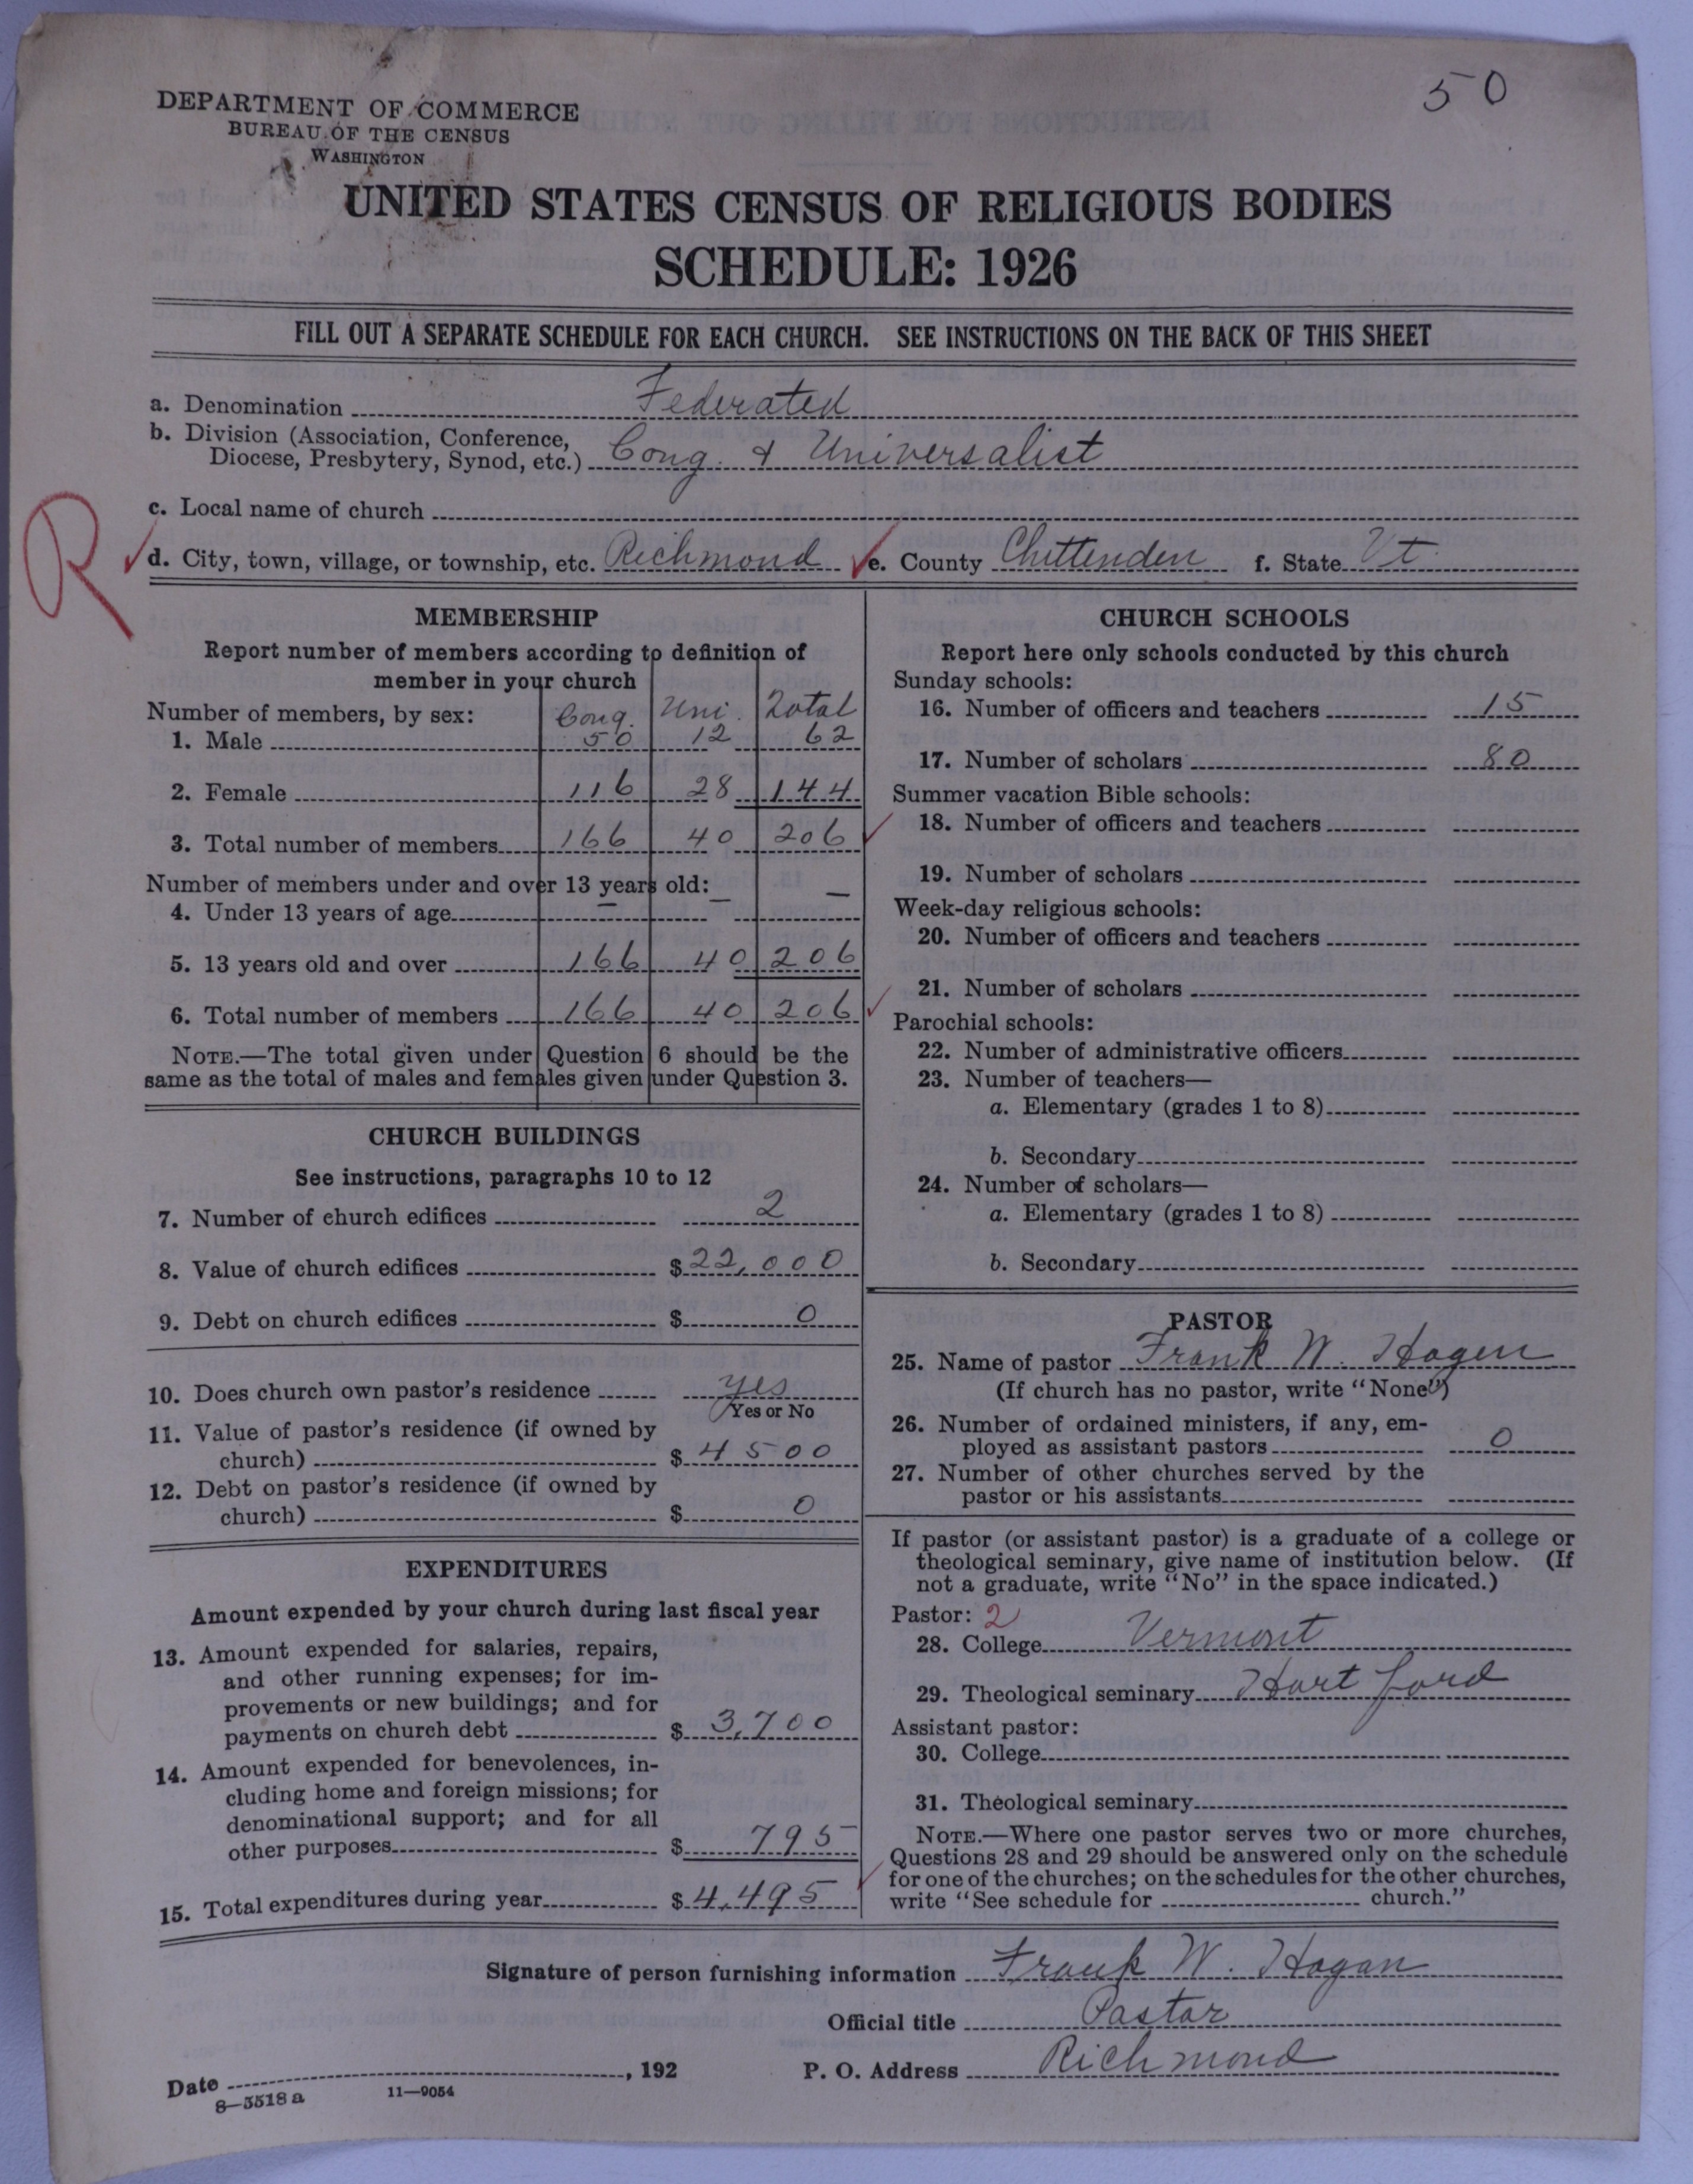 50
DEPARTMENT OF COMMERCE
BUREAU OF THE CENSUS
WASHINGTON
UNITED STATES CENSUS OF RELIGIOUS BODIES
SCHEDULE: 1926
FILL OUT A SEPARATE SCHEDULE FOR EACH CHURCH. SEE INSTRUCTIONS ON THE BACK OF THIS SHEET
a. Denomination Federated
b. Division (Association, Conference,
Diocese, Presbytery, Synod, etc.) Cong. & Universalist
c. Local name of church
R
d. City, town, village, or township, etc. Richmond e. County Chittenden f. State Vt.
MEMBERSHIP
Report number of members according to definition of
member in your church
Number of members, by sex: Cong. Uni. Total
1. Male 50 12 62
2. Female 116 28 144
3. Total number of members 166 40 206
Number of members under and over 13 years old:
4. Under 13 years of age — — —
5. 13 years old and over 166 40 206
6. Total number of members 166 40 206
NOTE.—The total given under Question 6 should be the
same as the total of males and females given under Question 3.
CHURCH BUILDINGS
See instructions, paragraphs 10 to 12
7. Number of church edifices 2
8. Value of church edifices $ 22,000
9. Debt on church edifices $ 0
10. Does church own pastor's residence yes
Yes or No
11. Value of pastor's residence (if owned by
church) $ 4500
12. Debt on pastor's residence (if owned by
church) $ 0
EXPENDITURES
Amount expended by your church during last fiscal year
13. Amount expended for salaries, repairs,
and other running expenses; for im-
provements or new buildings; and for
payments on church debt $ 3,700
14. Amount expended for benevolences, in-
cluding home and foreign missions; for
denominational support; and for all
other purposes $ 795
15. Total expenditures during year $ 4,495
CHURCH SCHOOLS
Report here only schools conducted by this church
Sunday schools:
16. Number of officers and teachers 15
17. Number of scholars 80
Summer vacation Bible schools:
18. Number of officers and teachers
19. Number of scholars
Week-day religious schools:
20. Number of officers and teachers
21. Number of scholars
Parochial schools:
22. Number of administrative officers
23. Number of teachers—
a. Elementary (grades 1 to 8)
b. Secondary
24. Number of scholars—
a. Elementary (grades 1 to 8)
b. Secondary
PASTOR
25. Name of pastor Frank W. Hogen
(If church has no pastor, write "None")
26. Number of ordained ministers, if any, em-
ployed as assistant pastors 0
27. Number of other churches served by the
pastor or his assistants
If pastor (or assistant pastor) is a graduate of a college or
theological seminary, give name of institution below. (If
not a graduate, write "No" in the space indicated.)
Pastor: 2
28. College Vermont
29. Theological seminary Hartford
Assistant pastor:
30. College
31. Theological seminary
NOTE.—Where one pastor serves two or more churches,
Questions 28 and 29 should be answered only on the schedule
for one of the churches; on the schedules for the other churches,
write "See schedule for church."
Signature of person furnishing information Frank W. Hogan
Official title Pastor
Date , 192 P. O. Address Richmond
8—5518 a 11—9054